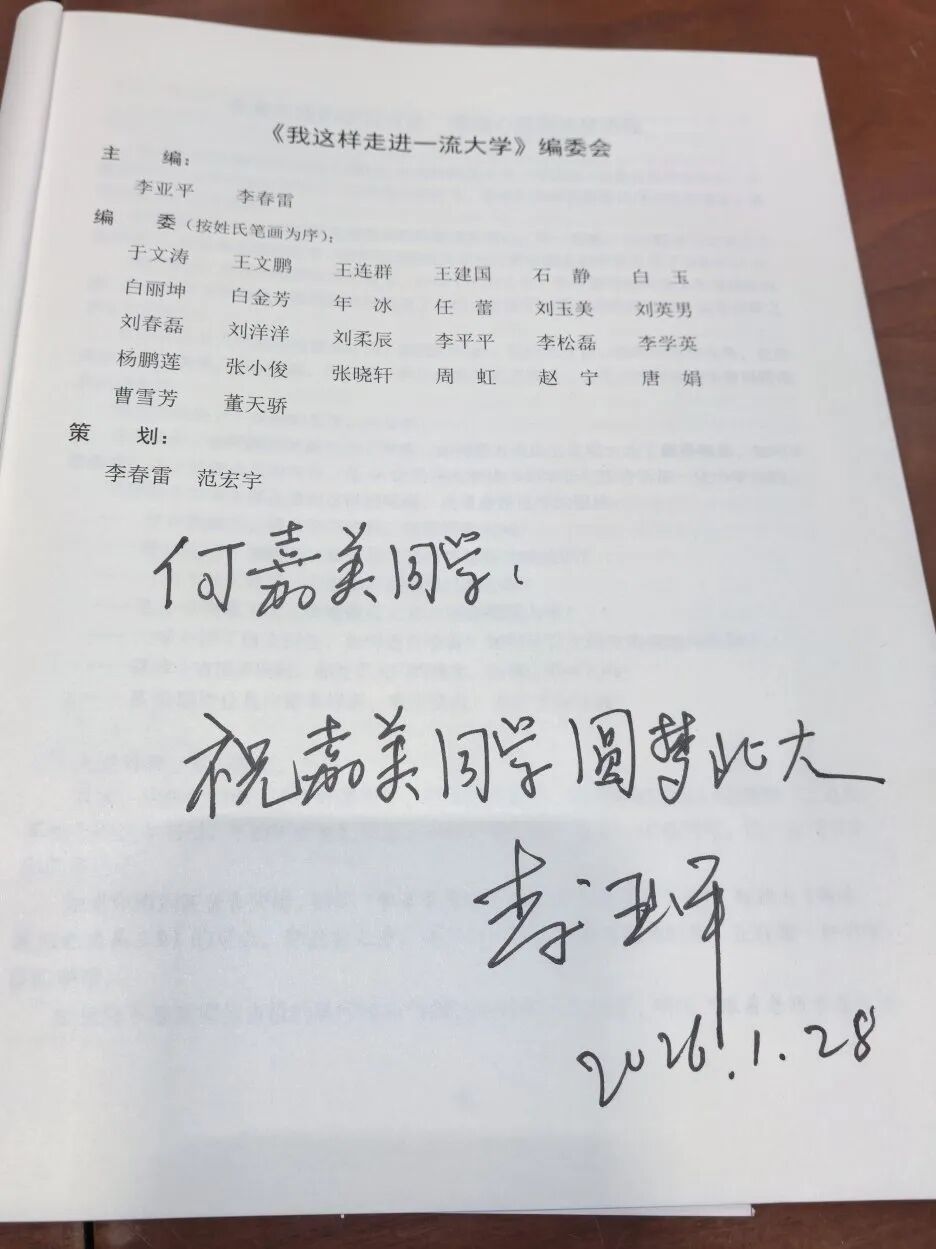 《我这样走进一流大学》编委会
主 编：
李亚平 李春雷
编 委（按姓氏笔画为序）：
于文涛 王文鹏 王连群 王建国 石 静 白 玉
白丽坤 白金芳 年 冰 任 蕾 刘玉美 刘英男
刘春磊 刘洋洋 刘柔辰 李平平 李松磊 李学英
杨鹏莲 张小俊 张晓轩 周 虹 赵 宁 唐 娟
曹雪芳 董天骄
策 划：
李春雷 范宏宇
何嘉美同学：
祝嘉美同学圆梦北大
李亚平
2026.1.28